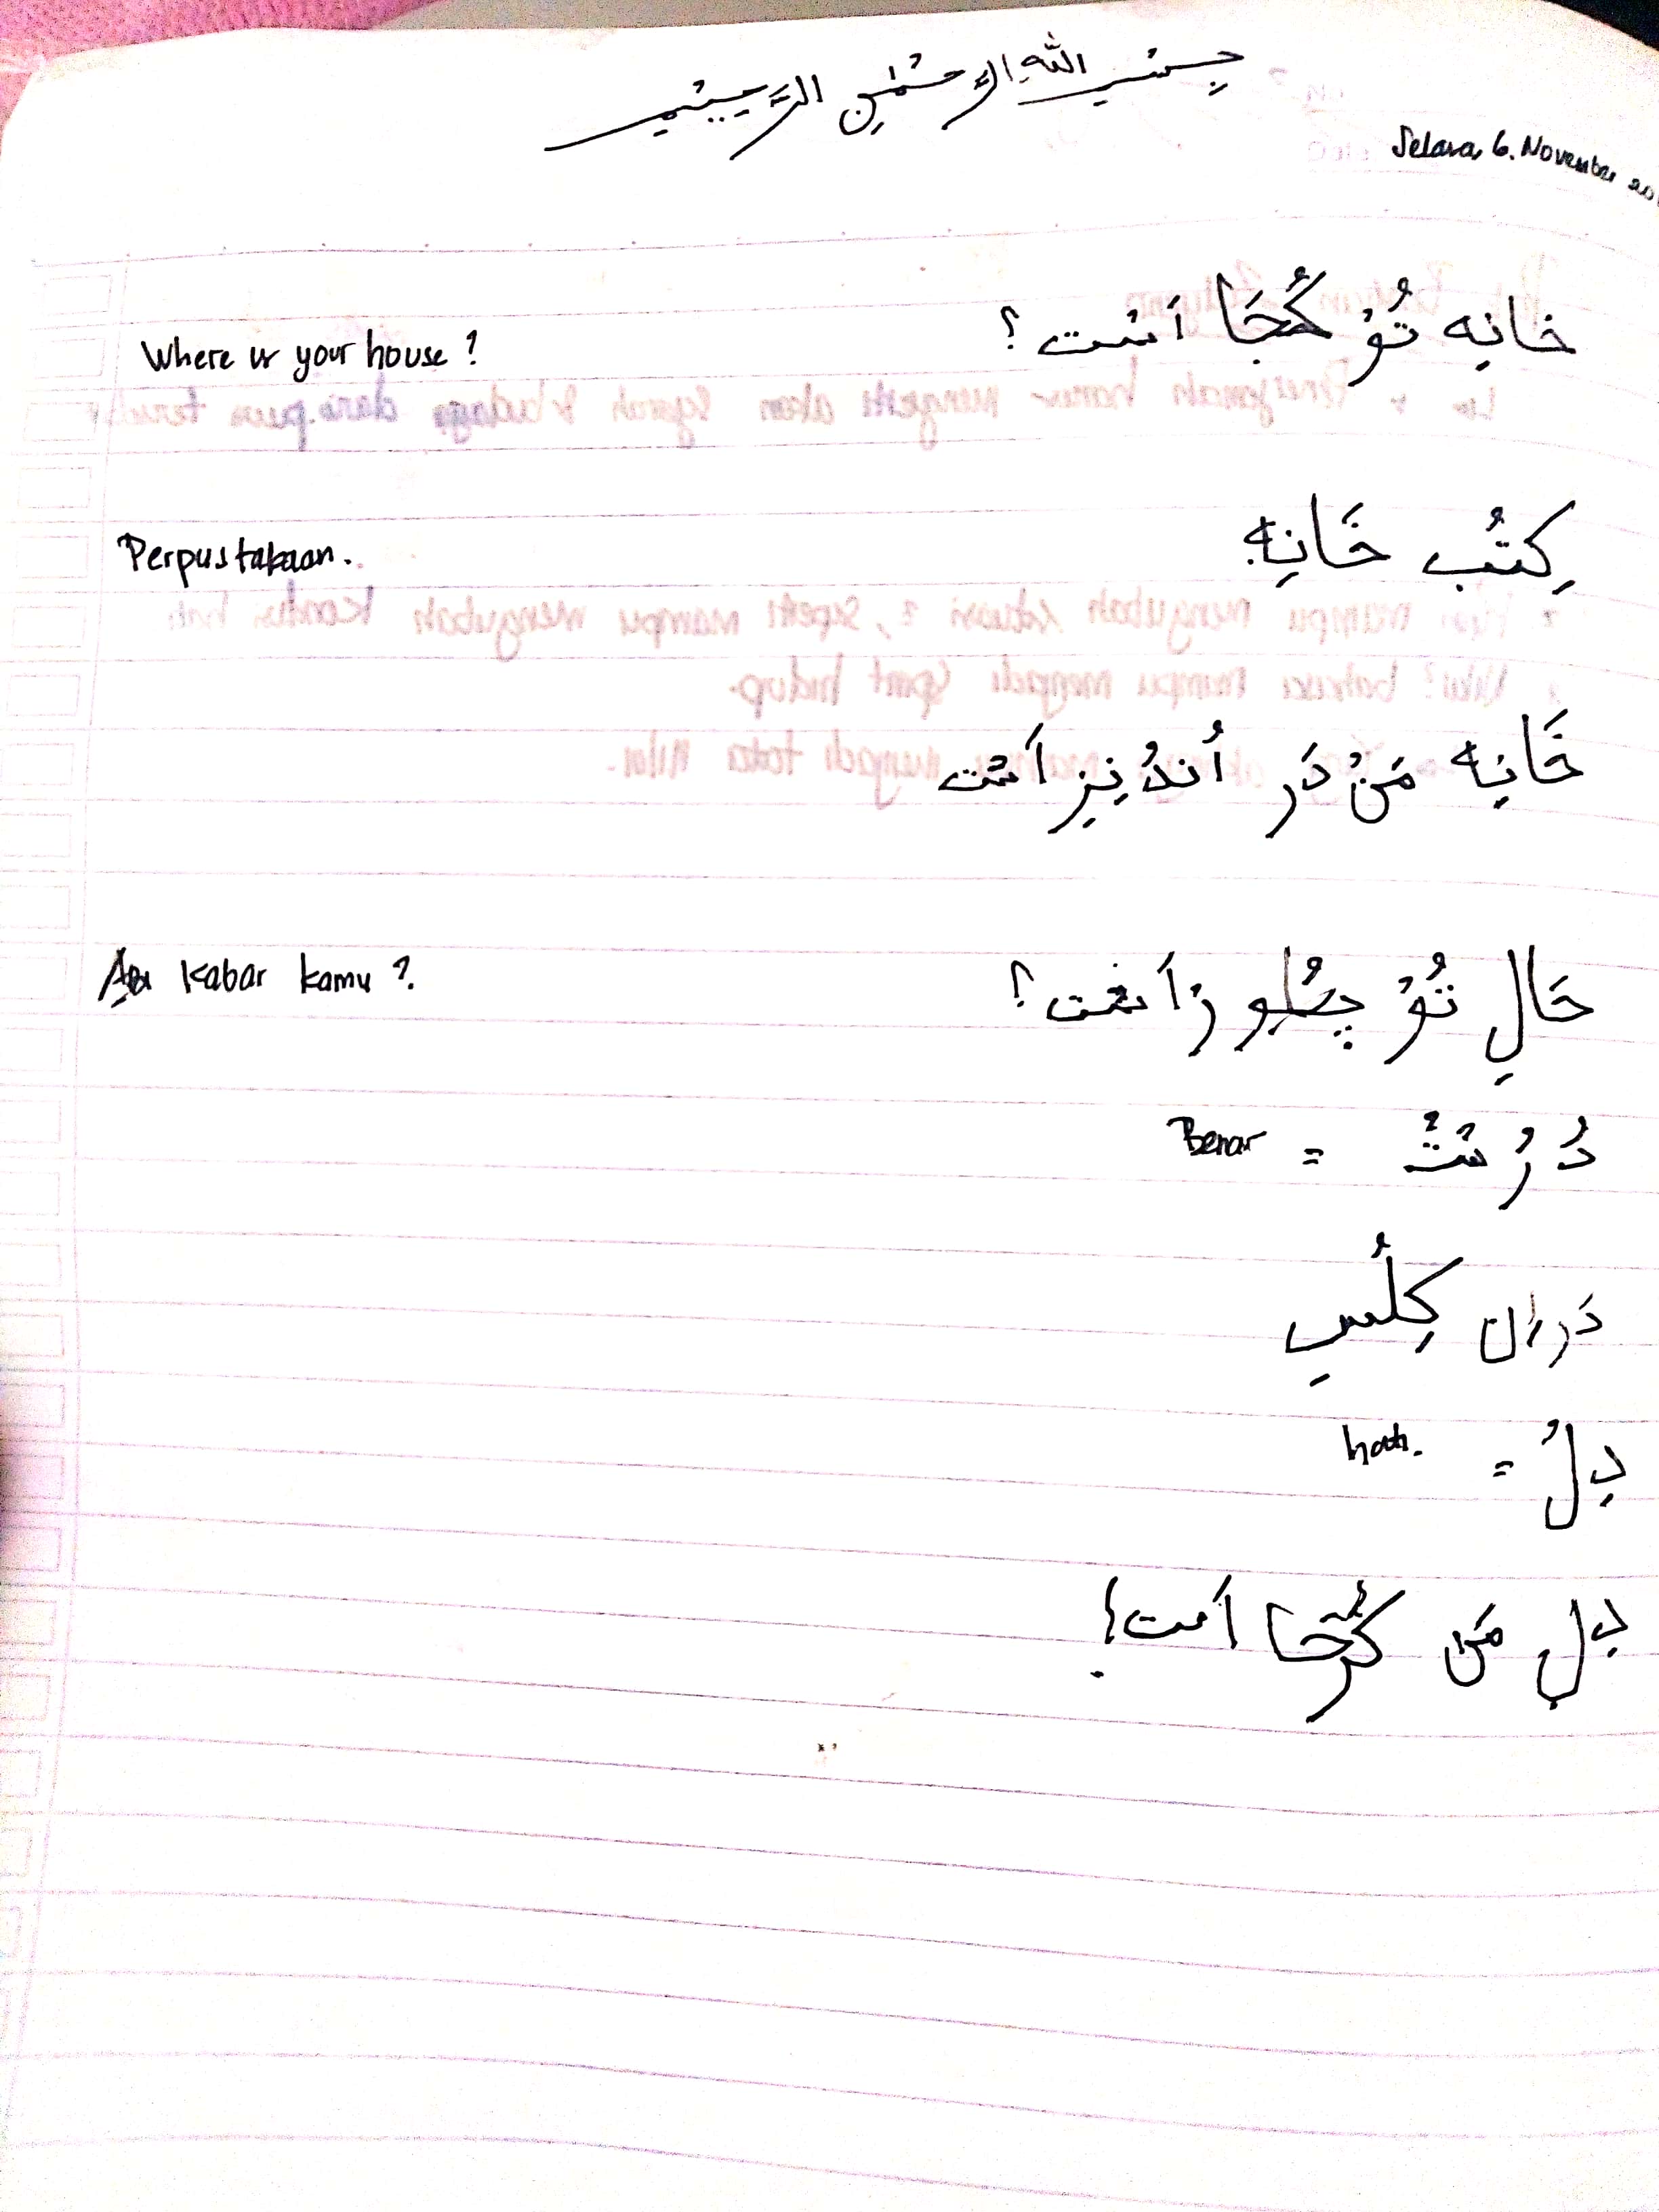 بِسْمِ اللهِ الرَّحْمٰنِ الرَّحِيْمِ
Selasa, 6. November
خانِه تُوْ كُجَا اَسْت؟
Where is your house?
كِتُب خَانِه
Perpustakaan.
خَانِه مَنْ دَر اُندُنِزِ اَسْت
حَالِ تُوْ چِطُو رْ اَست؟
Apa kabar kamu?
دُرُسْتْ = Benar
دَر اِن كِلُسِ
دِلْ = hati.
دِلِ مَن كُجَا اَست؟